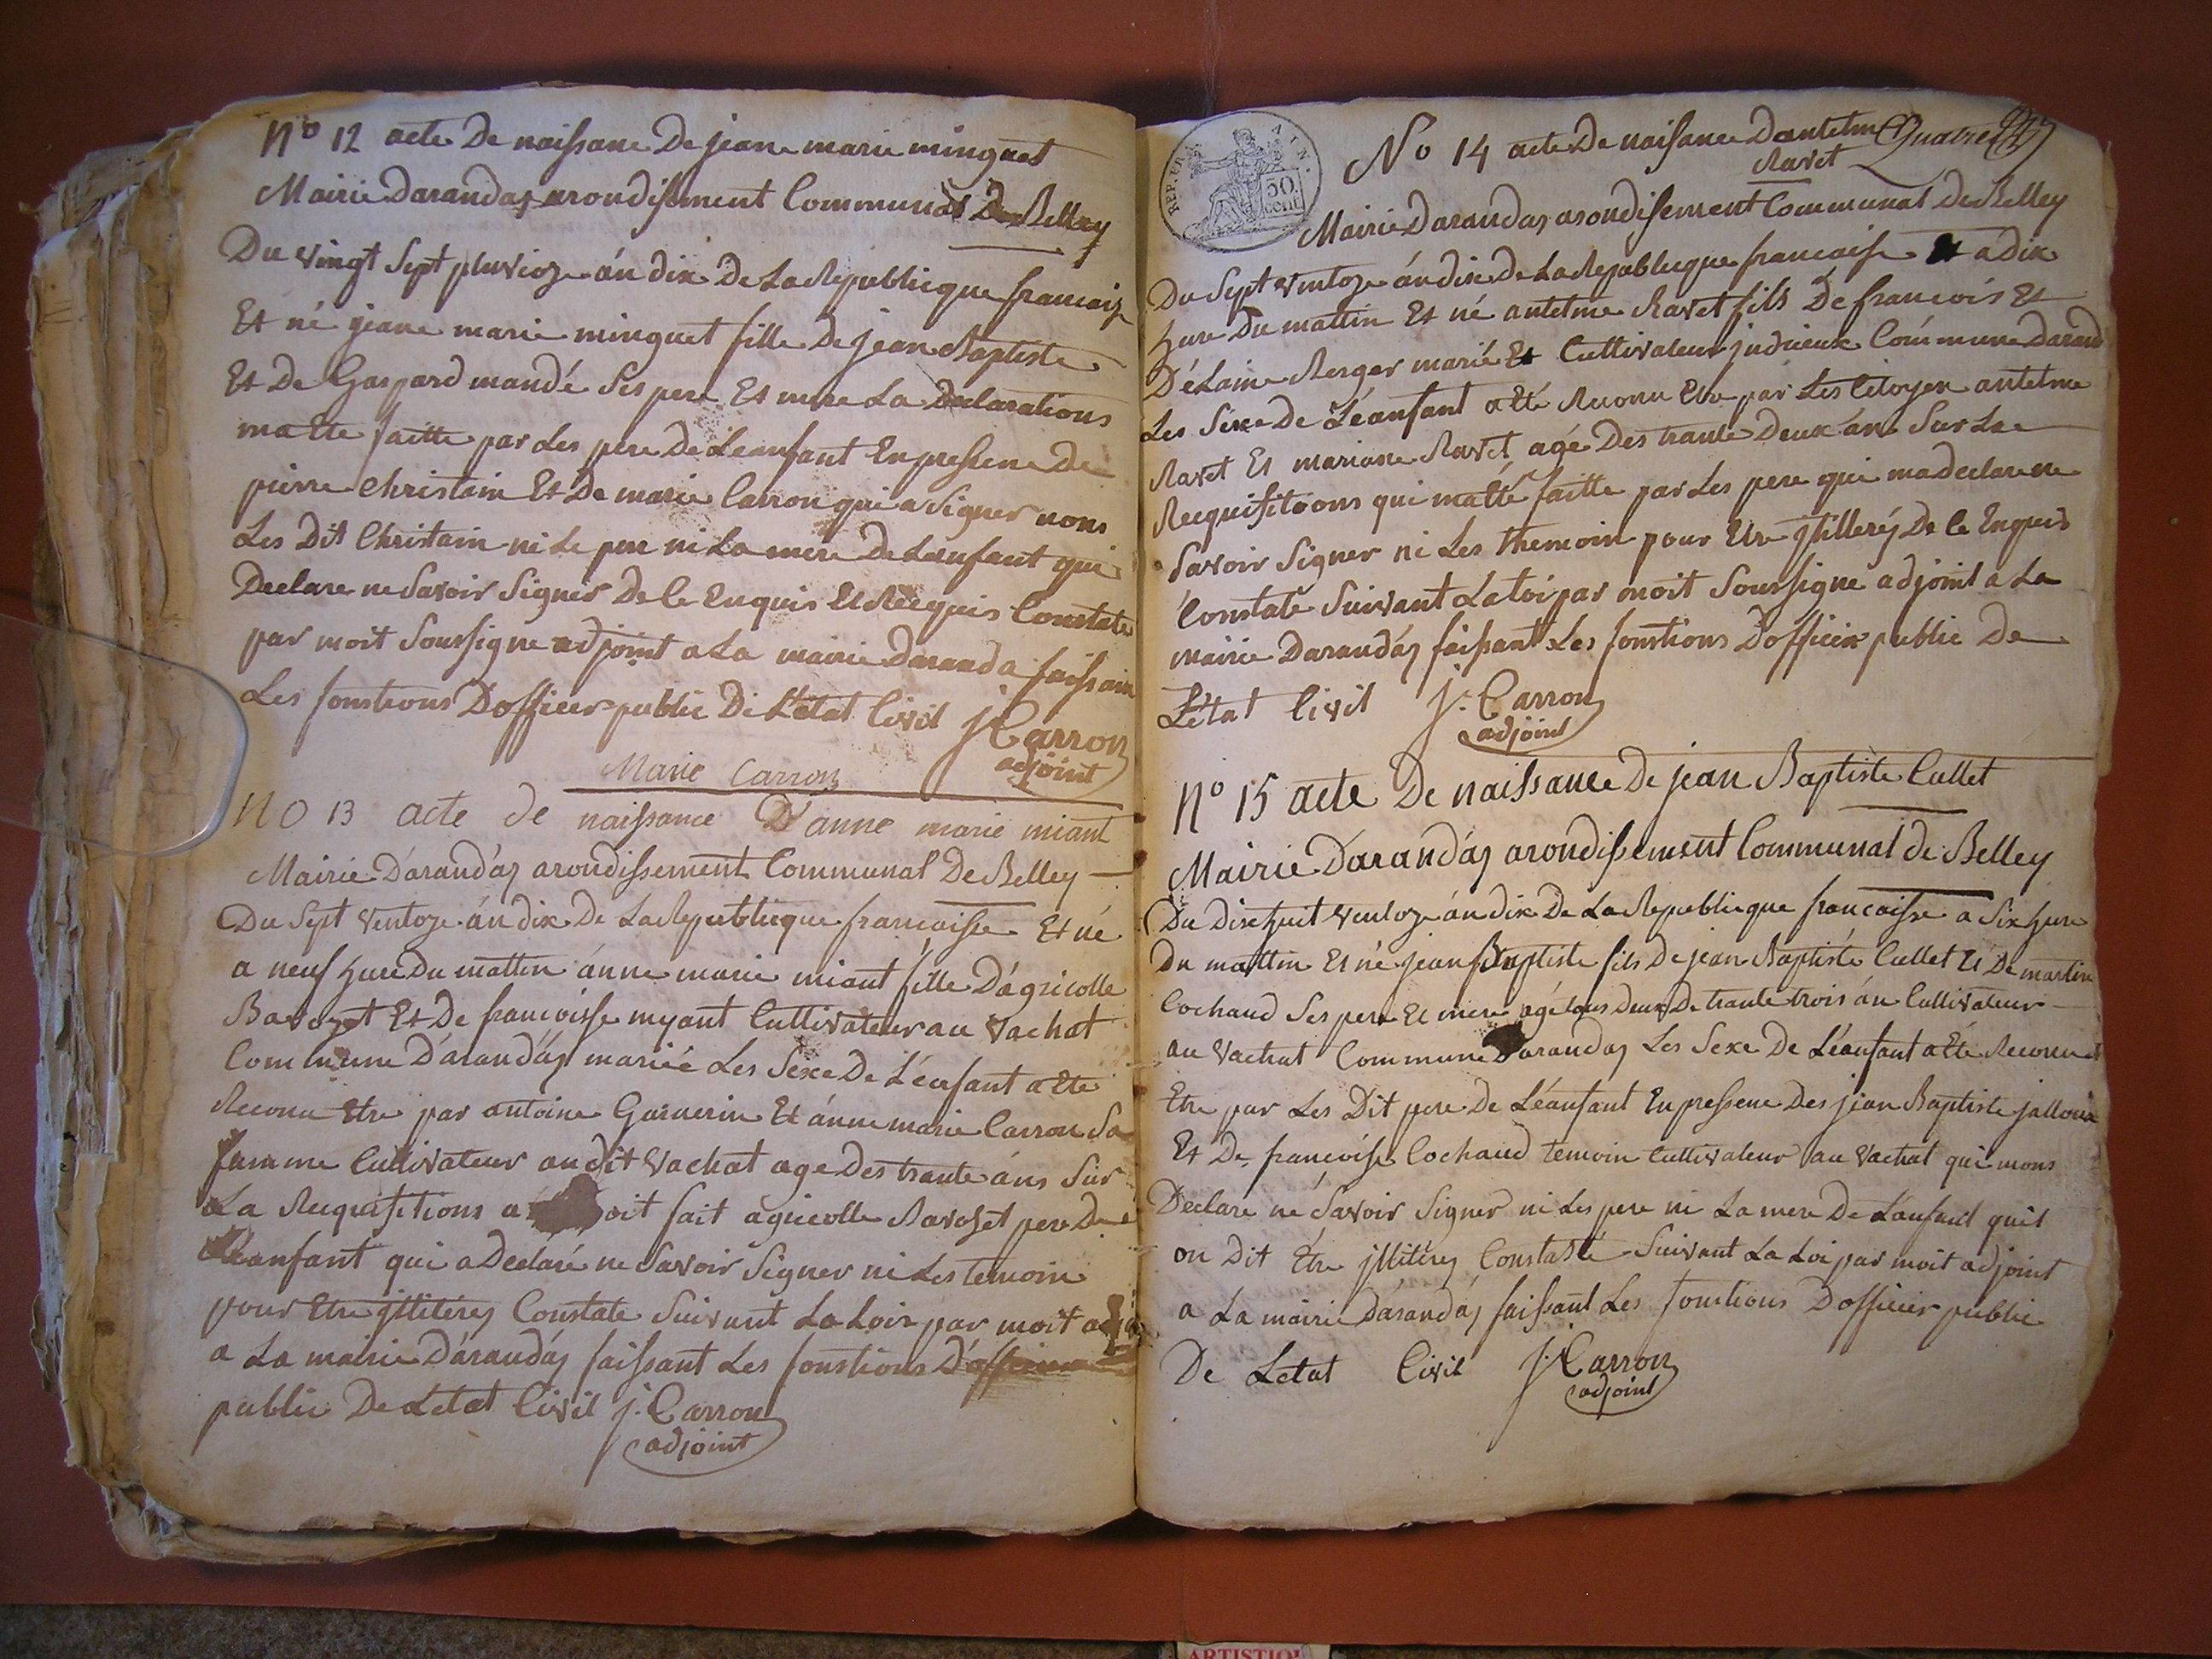 No 12 acte De naissane De jeane marie minguet
Mairie Darandas arondissement Communal De Belley
Du vingt Sept pluvioze án dix De La Republicque francaize
Et né jeane marie minguet fille De jean Baptiste
Et De Gaspard mandé Ses pere Et mere La Declarations
ma Ete faitte par Les pere De Léanfant En pressene De
pierre Christain Et De marie Carron qui a Signer nons
Les Dit Christain ni Le pere ni La mere De Léanfant qui
Declare ne Savoir Signer De Ce Enquis Et Recquis Constate
par moit Soussigne adjoint a La mairie Daranda faissain
Les fonstions Dofficer public De Létat Civil J Carron
adjoint
Marie Carron
NO 13 acte de naissance D'anne marie miant
Mairie Dárandáz arondissement Communal De Belley
Du Sept Ventoze án dix De La Republicque francaisse Et né
a neuf hure Du mattin ánne marie miant fille Dágricolle
Bavozet Et De francoisse myant Cultivateur au Vachat
Commune Dárandáz mariée Les Sexe De Léenfant a Ete
Reconu Etre par antoine Garnerin Et ánne marie Carron Sa
famme Cultivateur au dit Vachat age Des trante áns Sur
La Recquisitions a oit fait agricolle Ravozet pere De
Léanfant qui a Declaré ne Savoir Signer ni Les temoin
pour Etre jllitéréz Constate Suivant La Loix par moit
a La mairie Dárandáz faissant Les fonstions
public De Letat Civil j. Carron
adjoint
REP. FRA. AIN. 50. cent
No 14 acte De naissance Dantelme Quatre
Ravet
Mairie Darandaz arondissement Communal De Belley
Du Sept Ventoze án dix De La Republicque francaisse Et a dix
hure Du mattin Et né antelme Ravet fils De francois Et
Délaine Berger marié Et Cultivateur judrieux Commune Darand
Les Sexe De Léanfant a Eté Reconu Etre par Les Citoyen antelme
Ravet Et mariane Ravet agé Des trante Deux áns Sur La
Recquisitoons qui ma Eté faitte par Les pere qui ma declare ne
Savoir Signer ni Les themoin pour Etre De Ce Enquis
Constate Suivant La Loi par moit Soussigne adjoint a La
mairie Darandáz faissant Les fonstions Dofficier public De
Létat Civil J. Carron
adjoint
No 15 acte De naissance De jean Baptiste Cullet
Mairie Dárandáz arondissement Communal de Belley
Du Dix huit Ventoze án dix De La Republicque francaisse a Six hure
Du mattin Et né jean Baptiste fils De jean Baptiste Cullet Et De martine
Cochaud Ses pere Et mere agé tous deux De trante trois án Cultivateur
au Vachat Commune Darandaz Les Sexe De Léanfant a Eté Reconu
Etre par Les Dit pere De Léanfant En pressene Des jean Baptiste jalloux
Et De francoisse Cochaud temoin Cultivateur au Vachat qui mons
Declare ne Savoir Signer ni Les pere ni La mere De Lanfant quil
on Dit Etre jlliteréz Constaté Suivant La Loi par moit adjoint
a La mairie Dárandáz faissant Les fonstions Dofficier public
De Letat Civil J. Carron
adjoint